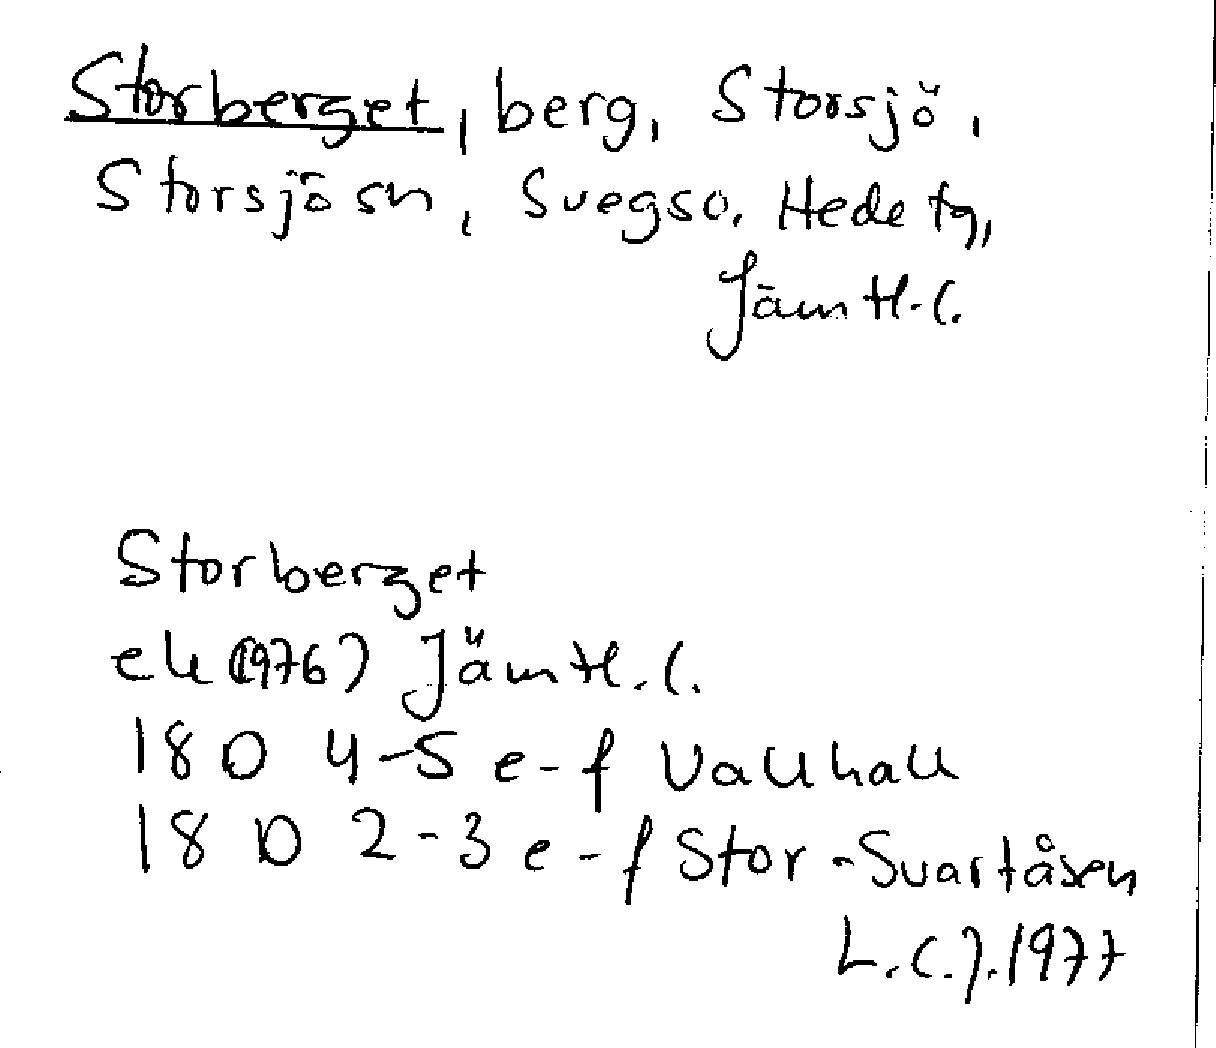 Storberget, berg, Storsjö,
Storsjö sn, Svegs o. Hede tg,
Jämtl. l.
Storberget
ek (1976) Jämtl. l.
18 D 4-5 e-f Vallhall
18 D 2-3 e-f Stor-Svartåsen
L.C.J. 1977